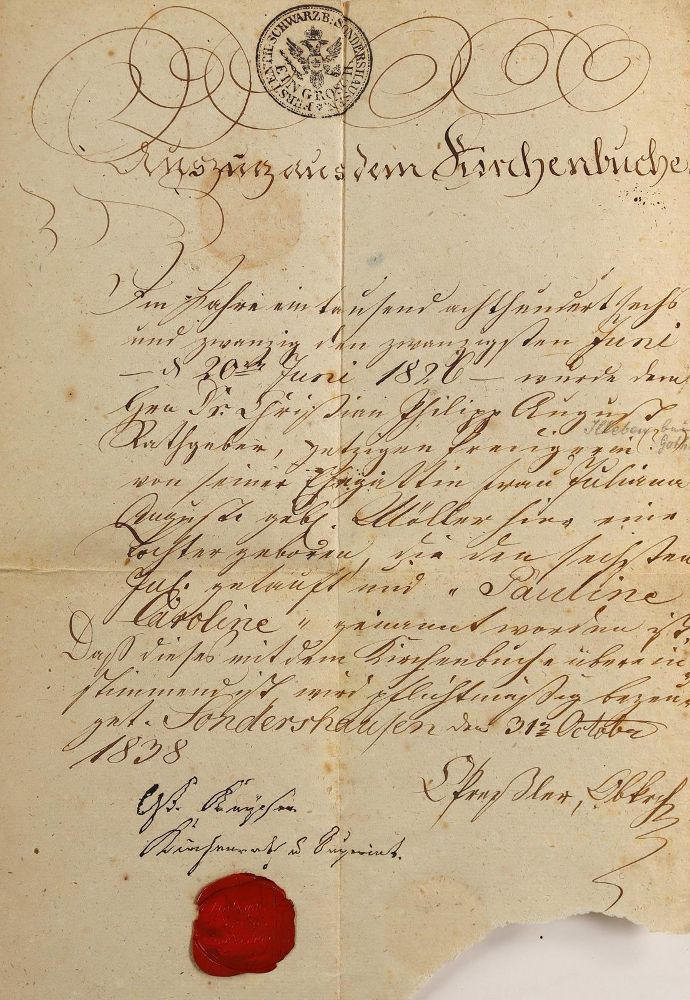 FÜRSTLICH SCHWARZB: SONDERSHAUSEN
EIN GROSCH
Auszug aus dem Kirchenbuche.
Im Jahre ein tausend achthundert sechs
und zwanzig den zwanzigsten Juni
— d 20ten Juni 1826 — wurde dem
Hrn Dr. Christian Philipp August
Rathgeber, jetzigen
Illeben bei Gotha
von seiner Ehegattin Frau Juliana
Auguste geb. Möller hier eine
Tochter geboren, die den sechsten
Jul. getauft und „Pauline
Caroline" genannt worden ist
Daß dieses mit dem Kirchenbuche überein
stimmend ist wird pflichtmäßig bezeu
get. Sondershausen den 31ten October
1838
Kirchenrath u Superint.